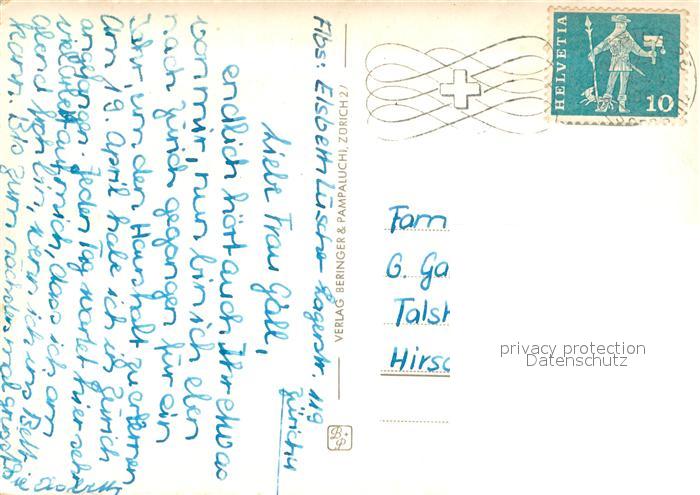 Abs: Elsbeth Lüscher Lagerstr. 119
Zürich 4
Liebe Frau Gall,
endlich hört auch Ihr etwas
von mir, nun bin ich eben
nach Zürich gegangen für ein
Jahr, um den Haushalt zu erlernen
Am 19. April habe ich in Zürich
angefangen. Jeden Tag wartet hier sehr
viel Arbeit auf mich, dass ich am
Abend froh bin, wenn ich ins Bett
kann. Bis zum nächsten mal grüsst Sie
Elsbeth
VERLAG BERINGER & PAMPALUCHI, ZÜRICH 27
B+P
HELVETIA
10
Fam
G. Ga
Talst
Hirsc
privacy protection
Datenschutz